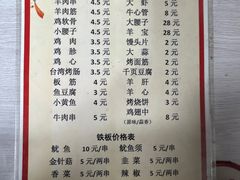 羊肉串 4.5元 大虾 5元
羊肉筋 4.5元 牛心管 8元
鸡软骨 4.5元 大腰子 28元
小腰子 4.5元 羊宝 28元
鸡肉 3.5元 馒头片 2元
鸡胗 3.5元 大蒜 2元
鸡心 3.5元 烤面筋 2元
台湾烤肠 3.5元 千页豆腐 2元
板筋 2元 羊肝 4元
鱼豆腐 2元 羊心 4元
小黄鱼 4元 烤烧饼 3元
牛肉串 5元 鸡翅中 8元
(原味/蒜香)
铁板价格表
鱿鱼 10元/串 鱿鱼须 5元
金针菇 5元/两串 韭菜 5元/两串
香菜 5元/两串 辣椒 5元/两串